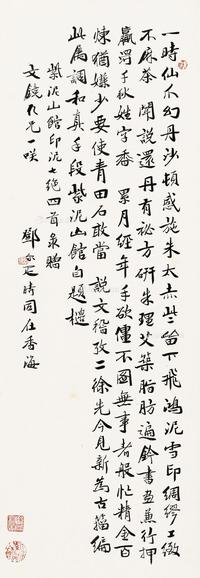 一時仙 幻丹沙頓感施朱太赤些 下飛鴻泥雪印綢繆工緻
不麻茶 聞說還丹有祕方研朱理艾築脂肪遍鈐書畫兼行押
贏得千秋姓字香 累月經年手欲僵不圖無事者般忙精金百
煉猶嫌少要使青田石敢當 說文 攷二徐先今見新 古籀編
此屬調和真手段紫泥山館自題
紫泥山館印泥七絕四首录贈
文鏡九兄一咲
鄧尔疋時同在香海